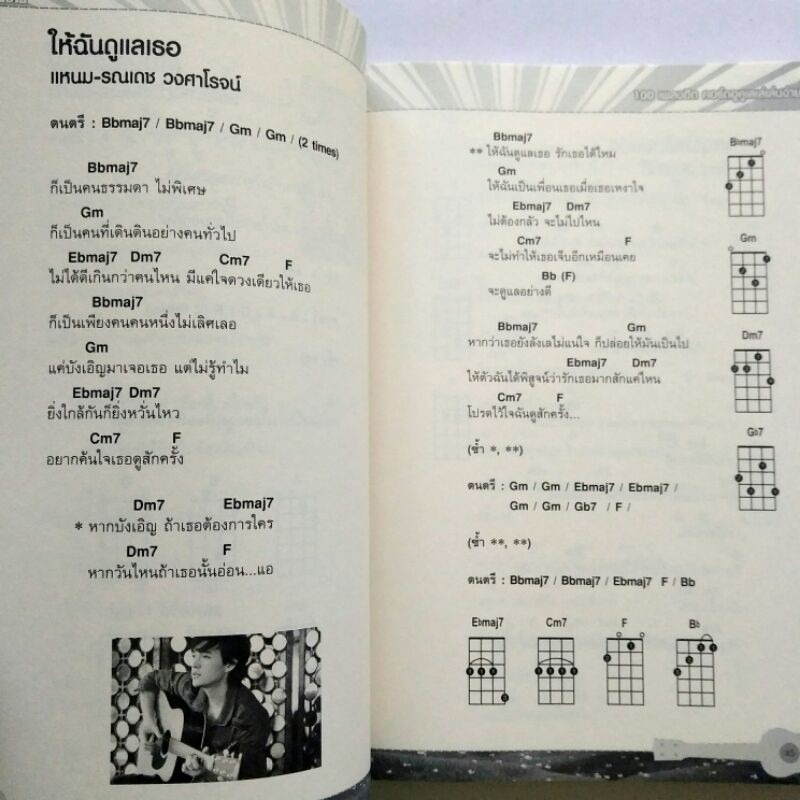 ให้ฉันดูแลเธอ
แหนม-รณเดช วงศาโรจน์
ดนตรี : Bbmaj7 / Bbmaj7 / Gm / Gm / (2 times)
Bbmaj7
ก็เป็นคนธรรมดา ไม่พิเศษ
Gm
ก็เป็นคนที่เดินดินอย่างคนทั่วไป
Ebmaj7 Dm7 Cm7 F
ไม่ได้ดีเกินกว่าคนไหน มีแค่ใจดวงเดียวให้เธอ
Bbmaj7
ก็เป็นเพียงคนคนหนึ่งไม่เลิศเลอ
Gm
แค่บังเอิญมาเจอเธอ แต่ไม่รู้ทำไม
Ebmaj7 Dm7
ยิ่งใกล้กันก็ยิ่งหวั่นไหว
Cm7 F
อยากค้นใจเธอดูสักครั้ง
Dm7 Ebmaj7
* หากบังเอิญ ถ้าเธอต้องการใคร
Dm7 F
หากวันไหนถ้าเธอนั้นอ่อน...แอ
100 เพลงฮิต คอร์ดอูคูเลเล่เล่นง่าย
Bbmaj7
** ให้ฉันดูแลเธอ รักเธอได้ไหม
Gm
ให้ฉันเป็นเพื่อนเธอเมื่อเธอเหงาใจ
Ebmaj7 Dm7
ไม่ต้องกลัว จะไม่ไปไหน
Cm7 F
จะไม่ทำให้เธอเจ็บอีกเหมือนเคย
Bb (F)
จะดูแลอย่างดี
Bbmaj7 Gm
หากว่าเธอยังลังเลไม่แน่ใจ ก็ปล่อยให้มันเป็นไป
Ebmaj7 Dm7
ให้ตัวฉันได้พิสูจน์ว่ารักเธอมากสักแค่ไหน
Cm7 F
โปรดไว้ใจฉันดูสักครั้ง...
(ซ้ำ *, **)
ดนตรี : Gm / Gm / Ebmaj7 / Ebmaj7 /
Gm / Gm / Gb7 / F /
(ซ้ำ **, **)
ดนตรี : Bbmaj7 / Bbmaj7 / Ebmaj7 F / Bb
B♭maj7
Gm
Dm7
G♭7
E♭maj7 Cm7 F B♭